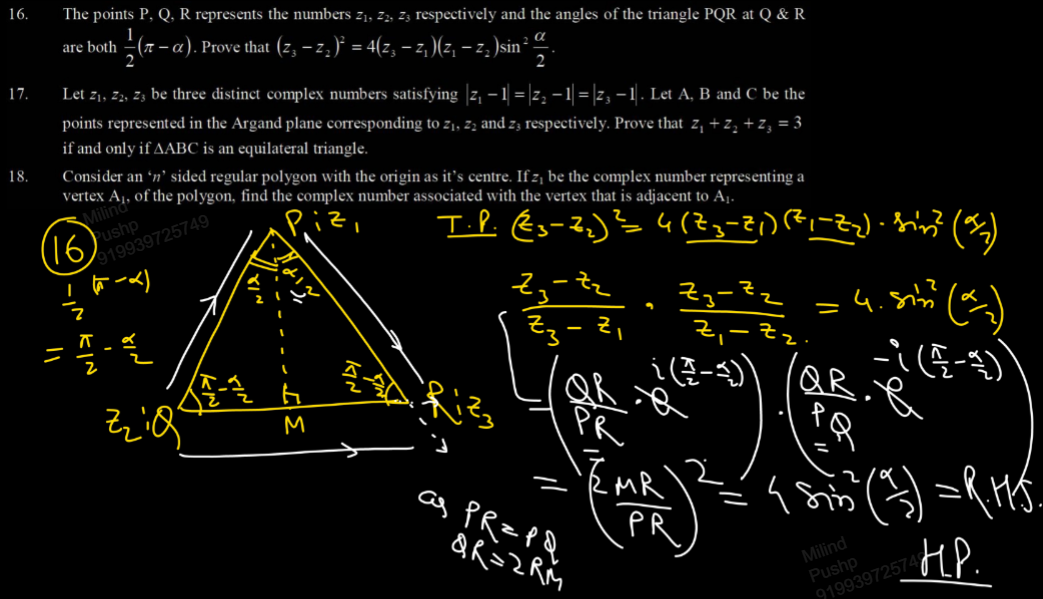 16. The points P, Q, R represents the numbers z₁, z₂, z₃ respectively and the angles of the triangle PQR at Q & R
are both 1/2 (π − α). Prove that (z₃ − z₂)² = 4(z₃ − z₁)(z₁ − z₂)sin² α/2.
17. Let z₁, z₂, z₃ be three distinct complex numbers satisfying |z₁ − 1| = |z₂ − 1| = |z₃ − 1|. Let A, B and C be the
points represented in the Argand plane corresponding to z₁, z₂ and z₃ respectively. Prove that z₁ + z₂ + z₃ = 3
if and only if ΔABC is an equilateral triangle.
18. Consider an ‘n’ sided regular polygon with the origin as it’s centre. If z₁ be the complex number representing a
vertex A₁, of the polygon, find the complex number associated with the vertex that is adjacent to A₁.
Milind
Pushp
919939725749
16
1/2 (π − α)
= π/2 − α/2
P; z₁
α/2 α/2
π/2 − α/2 π/2 − α/2
z₂; Q M R; z₃
T.P. (z₃ − z₂)² = 4 (z₃ − z₁)(z₁ − z₂) · sin² (α/2)
(z₃ − z₂)/(z₃ − z₁) · (z₃ − z₂)/(z₁ − z₂) = 4 · sin² (α/2)
= (QR/PR · e^{i(π/2 − α/2)}) · (QR/PQ · e^{−i(π/2 − α/2)})
= (2MR/PR)² = 4 sin² (α/2) = R.H.S.
as PR = PQ
QR = 2RM
H.P.
Milind
Pushp
919939725749